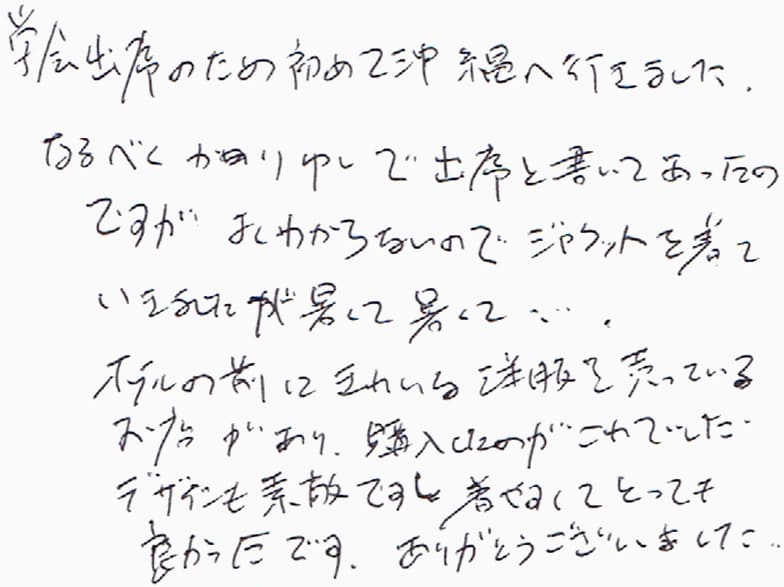 学会出席のため初めて沖縄へ行きました.
なるべくかりゆしで出席と書いてあったの
ですがよくわからないのでジャケットを着て
いきましたが暑くて暑くて….
ホテルの前にきれいな洋服を売っている
お店があり、購入したのがこれでした.
デザインも素敵ですし着やすくてとっても
良かったです. ありがとうございました.